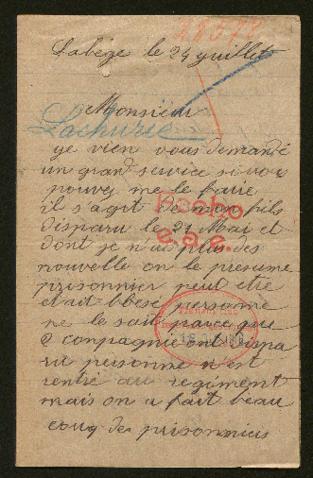 Labège le 24 yuillet
Monsieur
Lachurie
ye vien vous demandé
un grand service si vous
pouvez me le faire
il s'agit de mon fils
disparu le 21 Mai et
dont je n'ai plus des
nouvelle on le présume
prisonnier peut etre
etait blesé personne
ne le sait parce que
2 conpagnie ont dispa
ru personne n'est
rentré au regiment
mais on a fait beau
coup de prisonniers